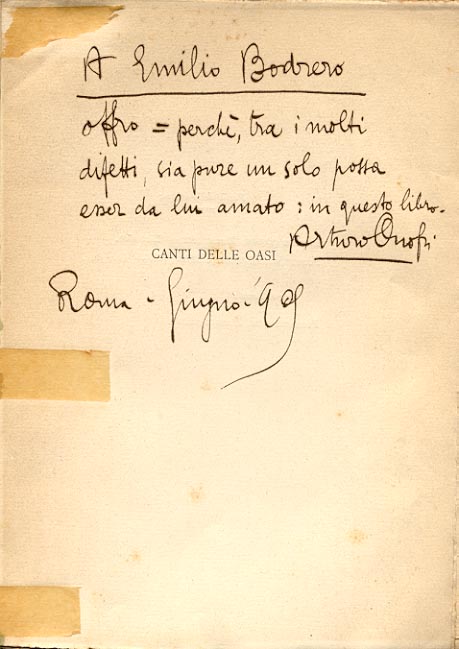 A Emilio Bodrero
offro = perchè, tra i molti
difetti, sia pure un solo possa
esser da lui amato : in questo libro.
Arturo Onofri
CANTI DELLE OASI
Roma - Giugno - '909